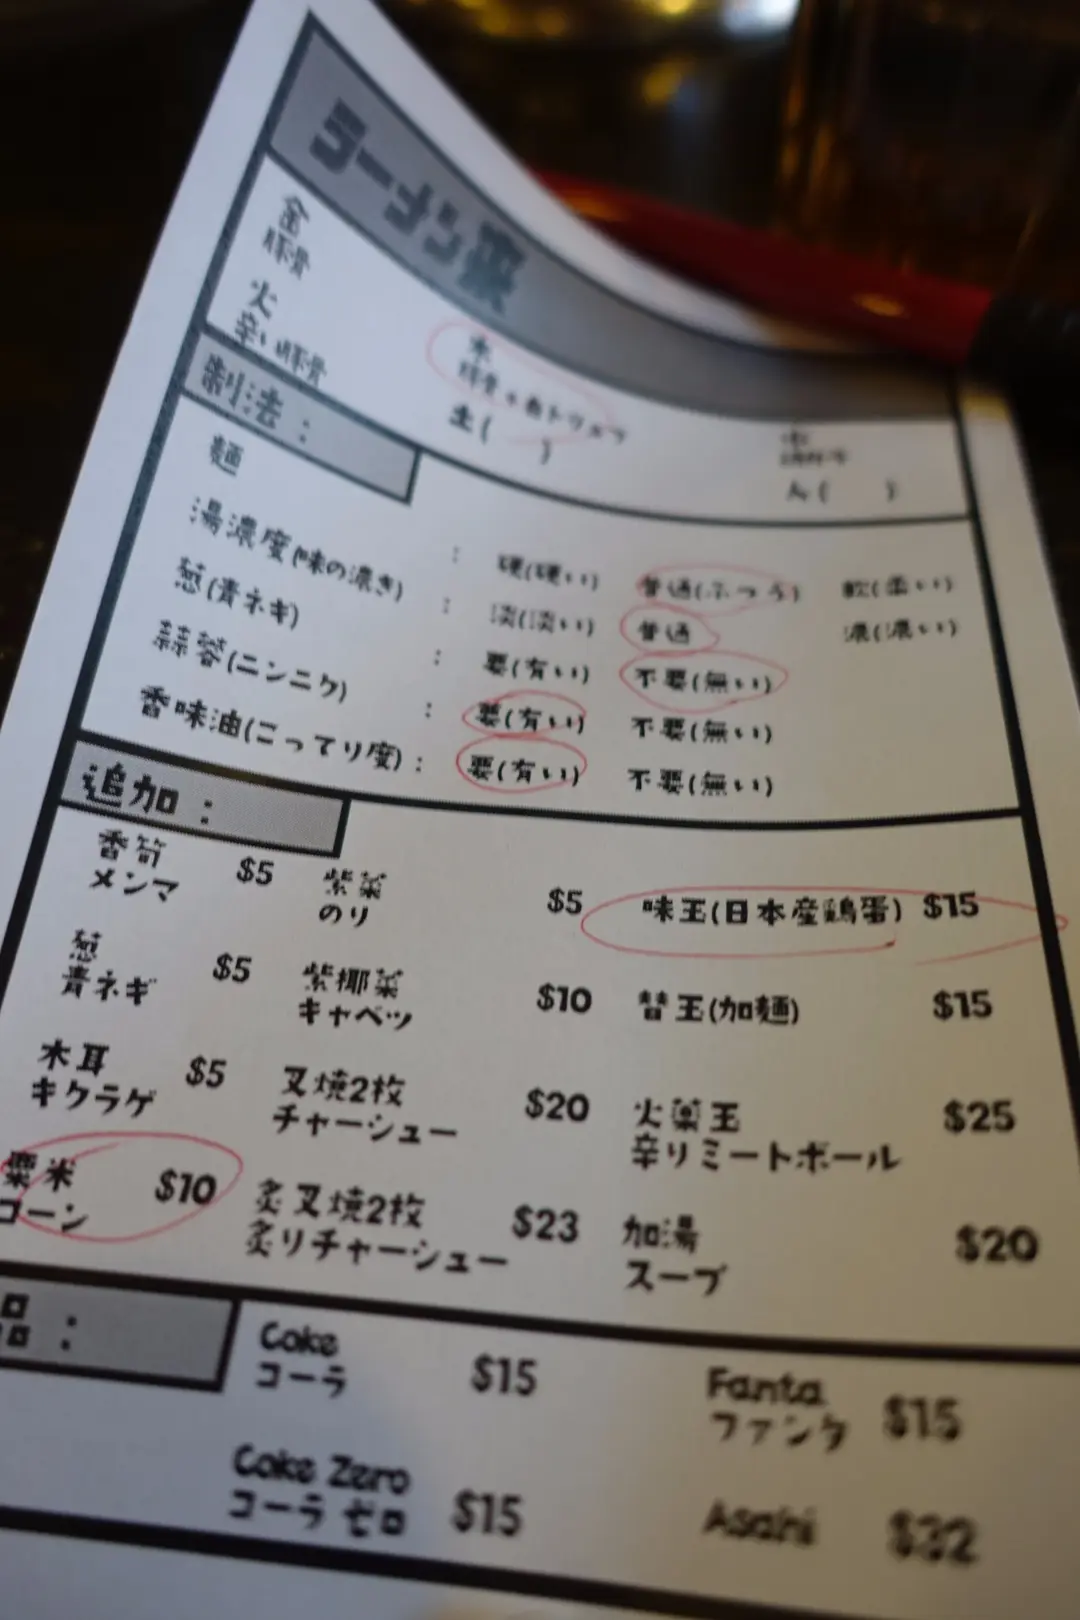 ラーメン来
金
豚骨
火
辛い豚骨
木
土(　　)
制法：
麺 : 硬(硬い) 普通(ふつう) 軟(柔い)
湯濃度(味の濃さ) : 淡(淡い) 普通 濃(濃い)
葱(青ネギ) : 要(有い) 不要(無い)
蒜蓉(ニンニク) : 要(有い) 不要(無い)
香味油(こってり度) : 要(有い) 不要(無い)
追加：
香筍 $5 紫菜 $5 味玉(日本産鶏蛋) $15
メンマ のり
葱 $5 紫椰菜 $10 替玉(加麺) $15
青ネギ キャベツ
木耳 $5 叉焼2枚 $20 火薬玉 $25
キクラゲ チャーシュー 辛りミートボール
粟米 $10 炙叉焼2枚 $23 加湯 $20
コーン 炙りチャーシュー スープ
品：
Coke $15 Fanta $15
コーラ ファンタ
Coke Zero $15 Asahi $32
コーラ ゼロ